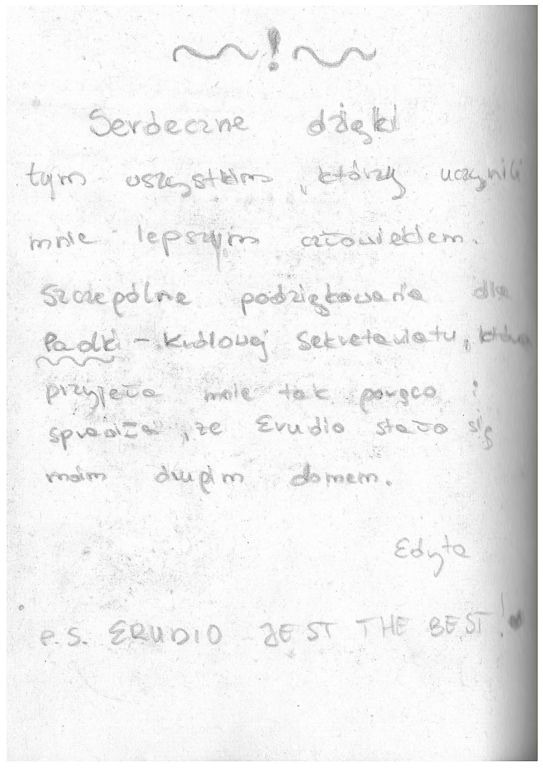 ~ ! ~
Serdeczne dzięki
tym wszystkim, którzy uczynili
mnie lepszym człowiekiem.
Szczególne podziękowania dla
Padki - Królowej Sekretariatu, która
przyjęła mnie tak gorąco i
sprawiła, że Erudio stało się
moim drugim domem.
Edyta
P.S. ERUDIO JEST THE BEST!